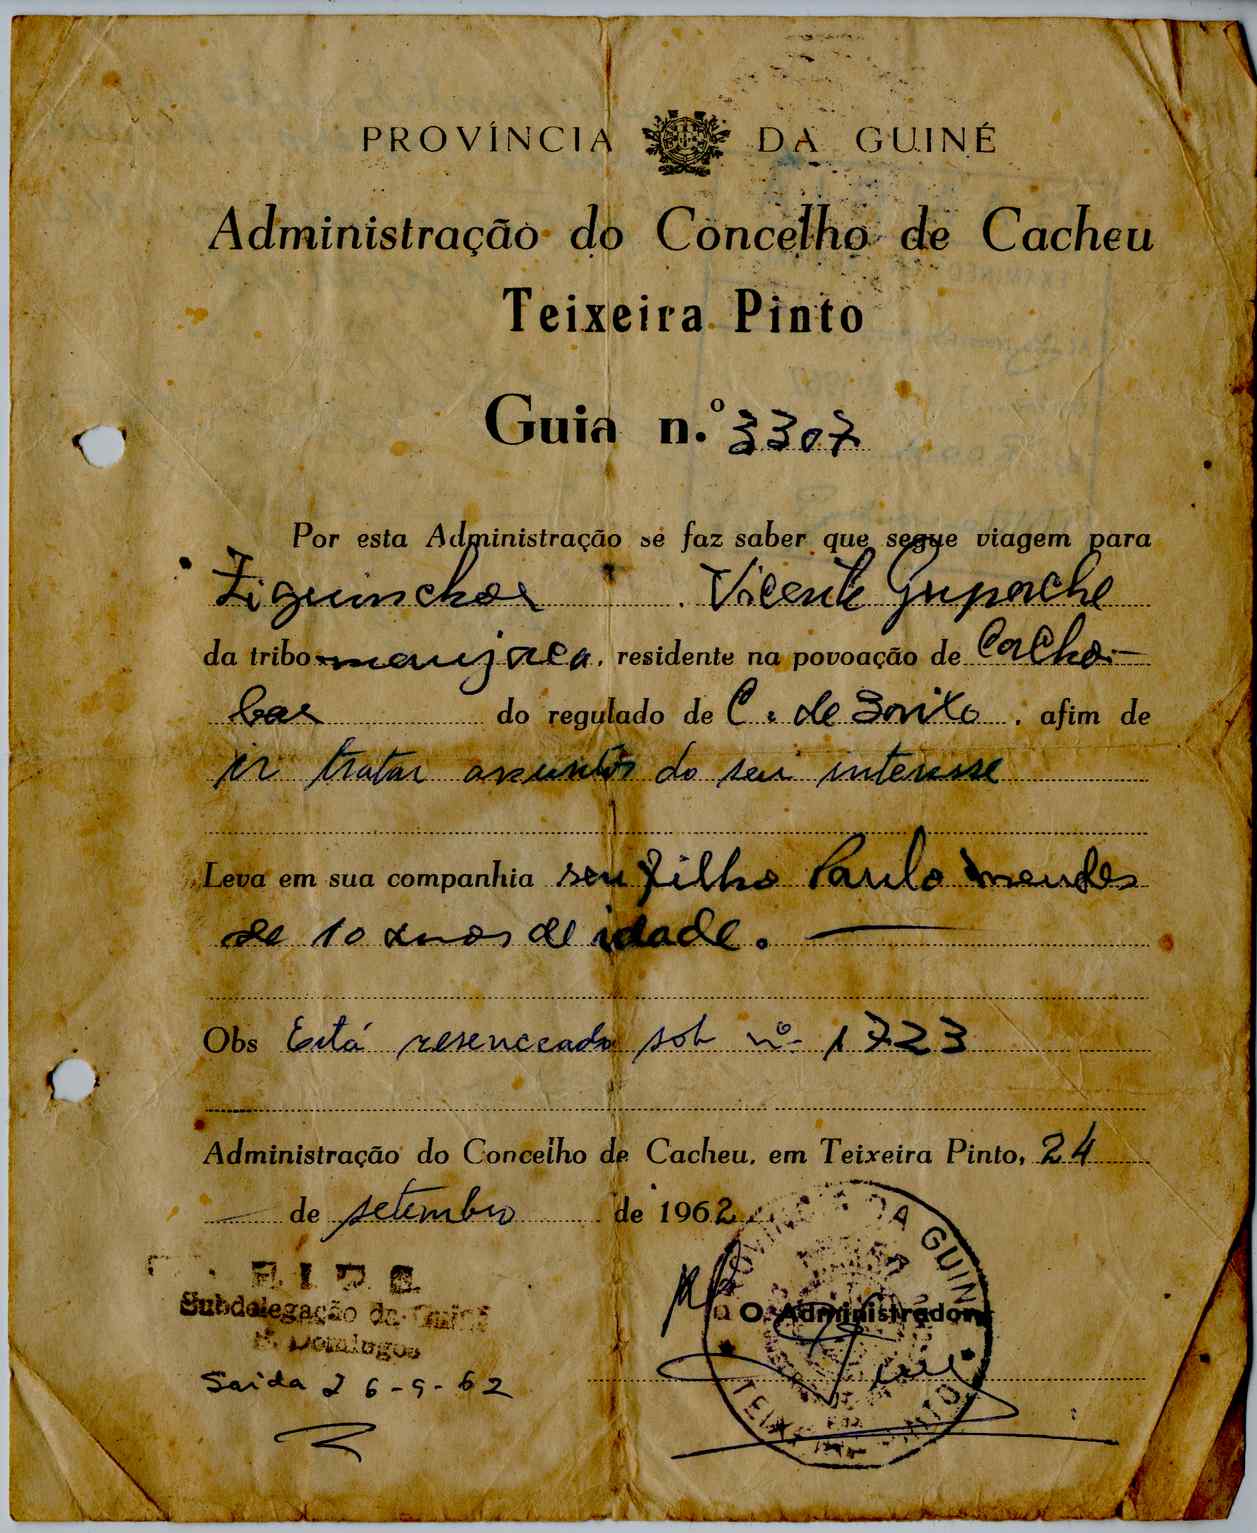 PROVÍNCIA DA GUINÉ
Administração do Concelho de Cacheu
Teixeira Pinto
Guia n.º 3307
Por esta Administração se faz saber que segue viagem para
Ziguinchor Vicente
da tribo manjaca, residente na povoação de
do regulado de C. de afim de
ir tratar assuntos do seu interesse
Leva em sua companhia seu filho Paulo Mendes
de 10 anos de idade.
Obs Está resenceado sob nº 1723
Administração do Concelho de Cacheu, em Teixeira Pinto, 24
de setembro de 1962
P. I. D. E.
Subdelegação da Guiné
S. Domingos
Saída 26-9-62
PROVÍNCIA DA GUINÉ
O Administrador,
TEIXEIRA PINTO